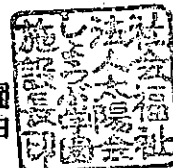 社会福祉
法人太陽会
しょうぶ学園
施設長印